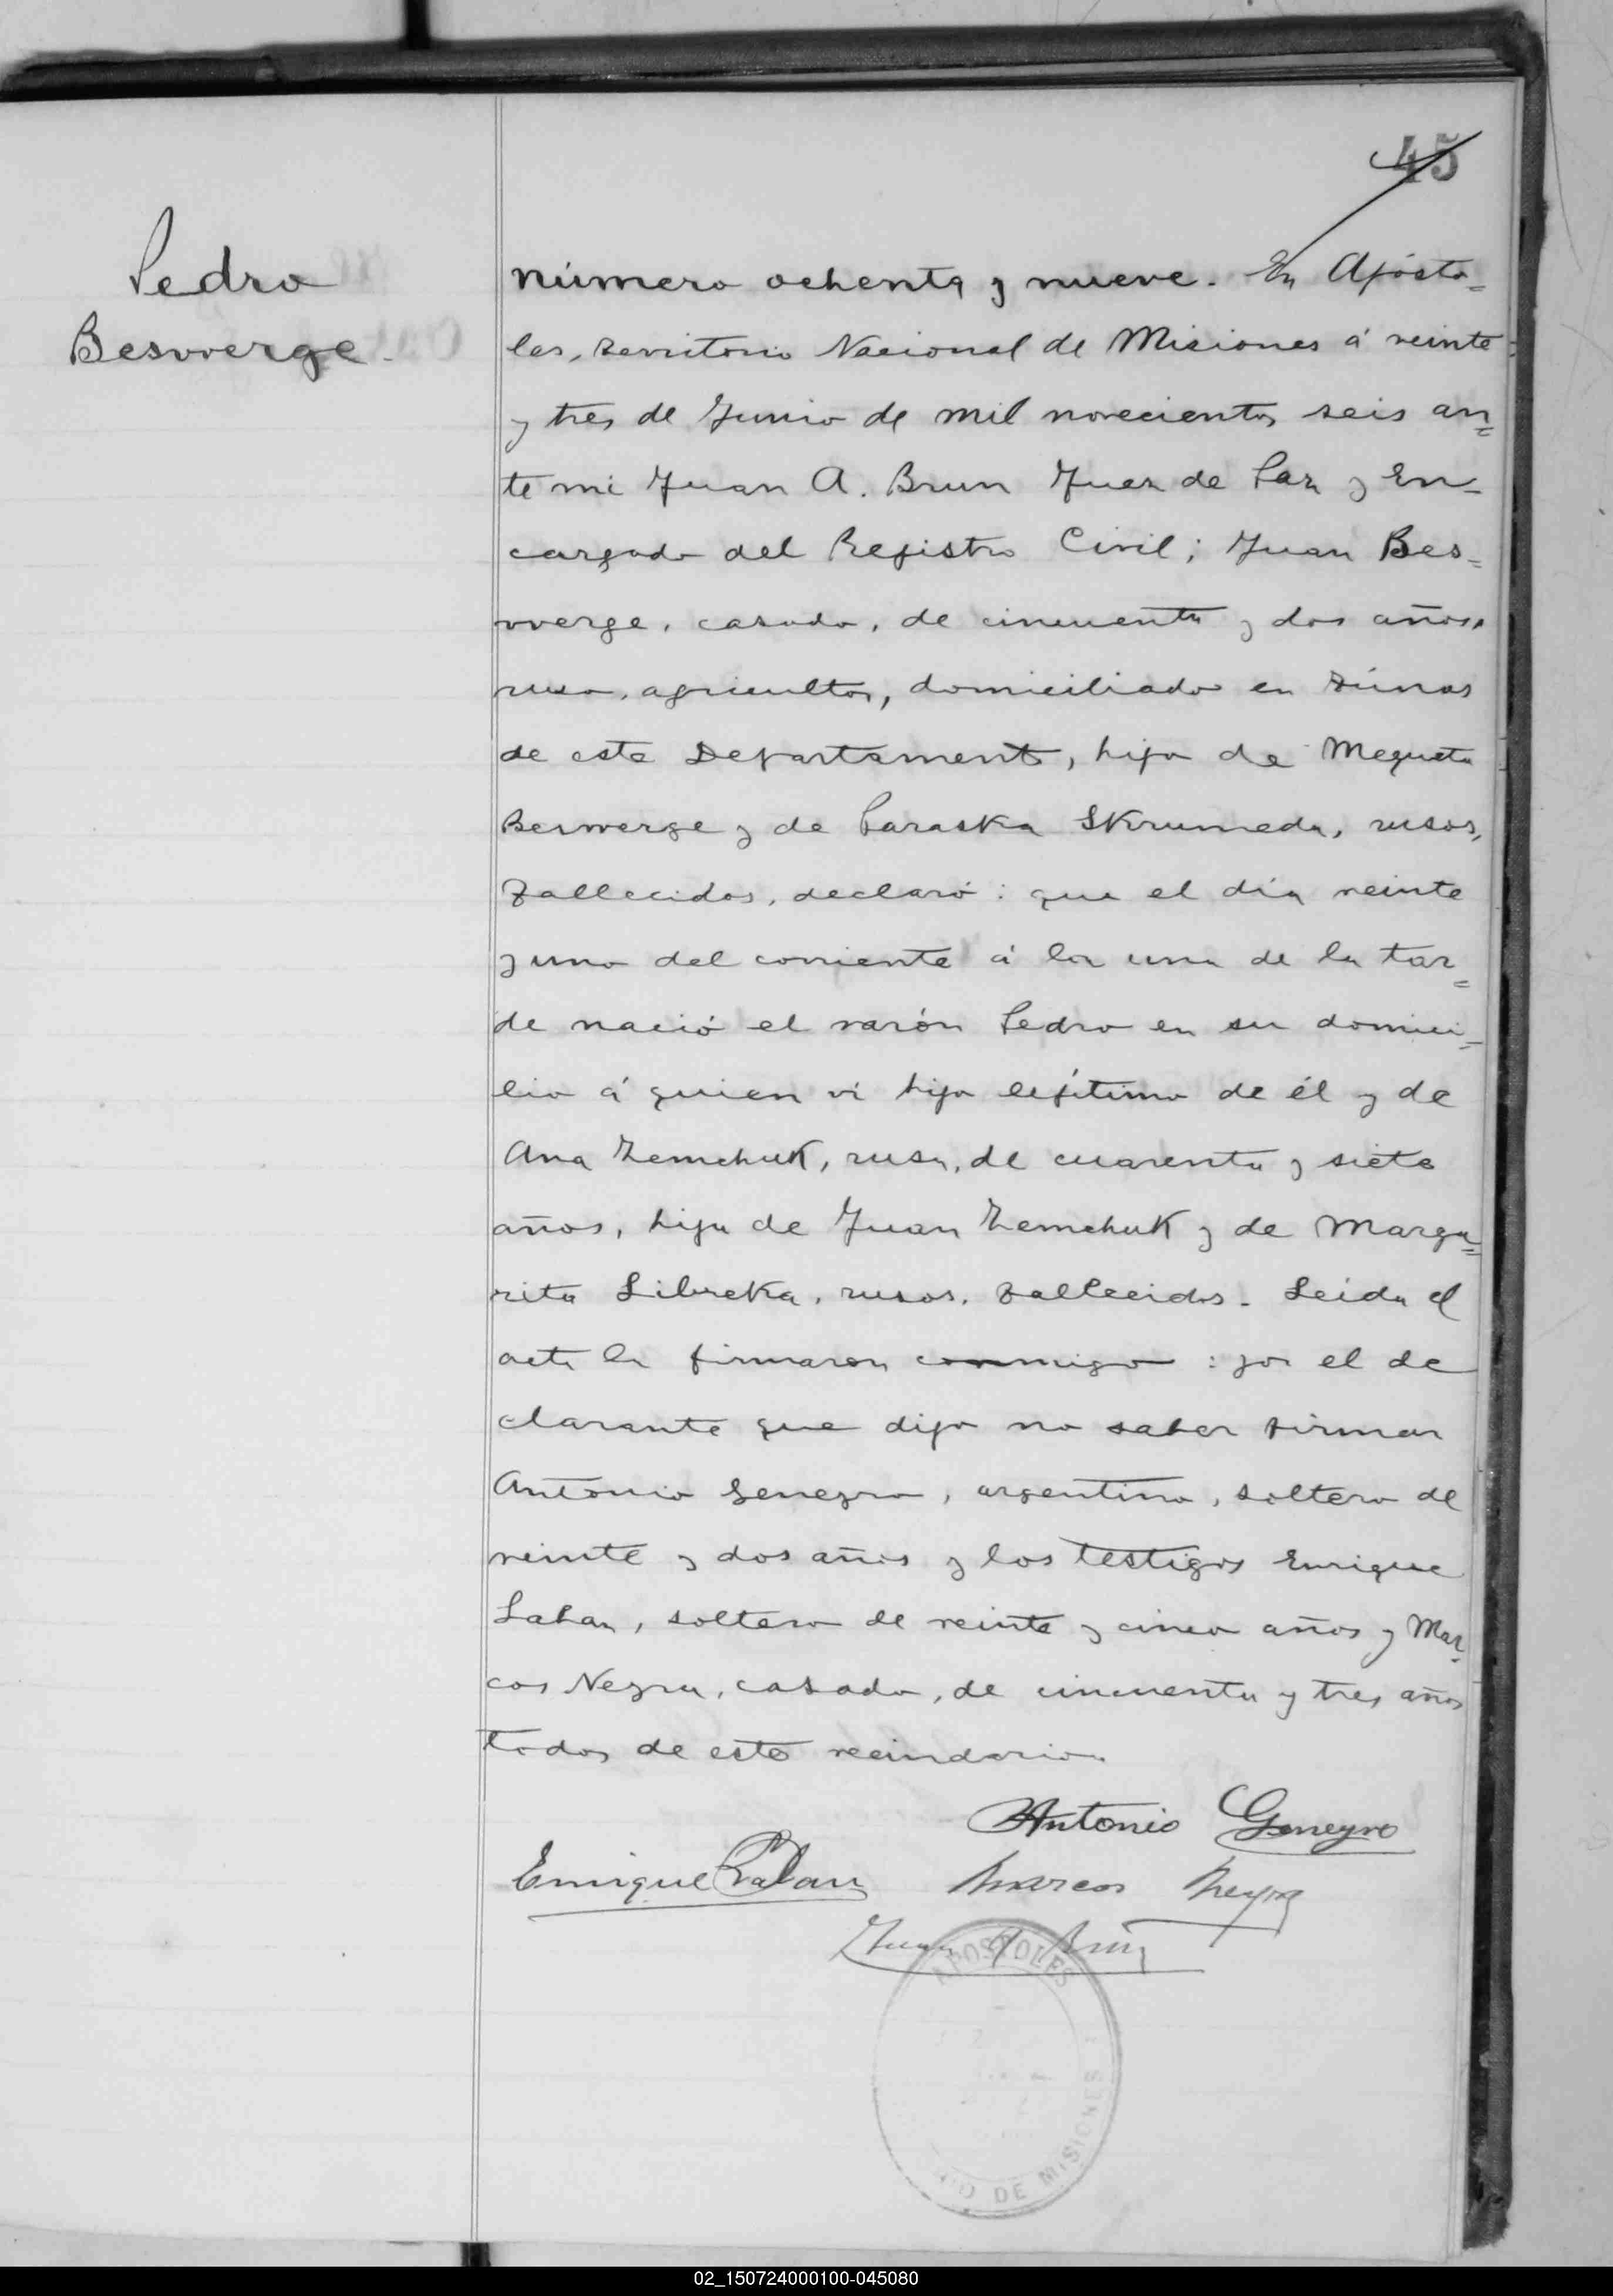 45
Pedro
Besverge.
Número ochenta y nueve. En Apósto=
les, territorio Nacional de Misiones á veinte
y tres de Junio de mil novecientos seis an=
te mi Juan A. Brun Juez de Paz y En-
cargado del Registro Civil; Juan Bes=
verge, casado, de cincuenta y dos años,
ruso, agricultor, domiciliado en
de este Departamento, hijo de
Besverge y de Paraska Skrumeda, rusos,
fallecidos, declaró: que el día veinte
y uno del corriente á la una de la tar=
de nació el varón Pedro en su domici=
lio á quien ví hijo legítimo de él y de
Ana Zemchuk, rusa, de cuarenta y siete
años, hija de Juan Zemchuk y de Marga=
rita Libreka, rusos, fallecidos. Leida el
acta la firmaron conmigo: por el de
clarante que dijo no saber firmar
Antonio Geneyro, argentino, soltero de
veinte y dos años y los testigos Enrique
soltero de veinte y cinco años y Mar=
cos Neyra, casado, de cincuenta y tres años
todos de este vecindario.
Antonio Geneyro
Enrique Marcos Neyra
Juan A Brun
APOSTOLES
DE MISIONES
02_150724000100-045080